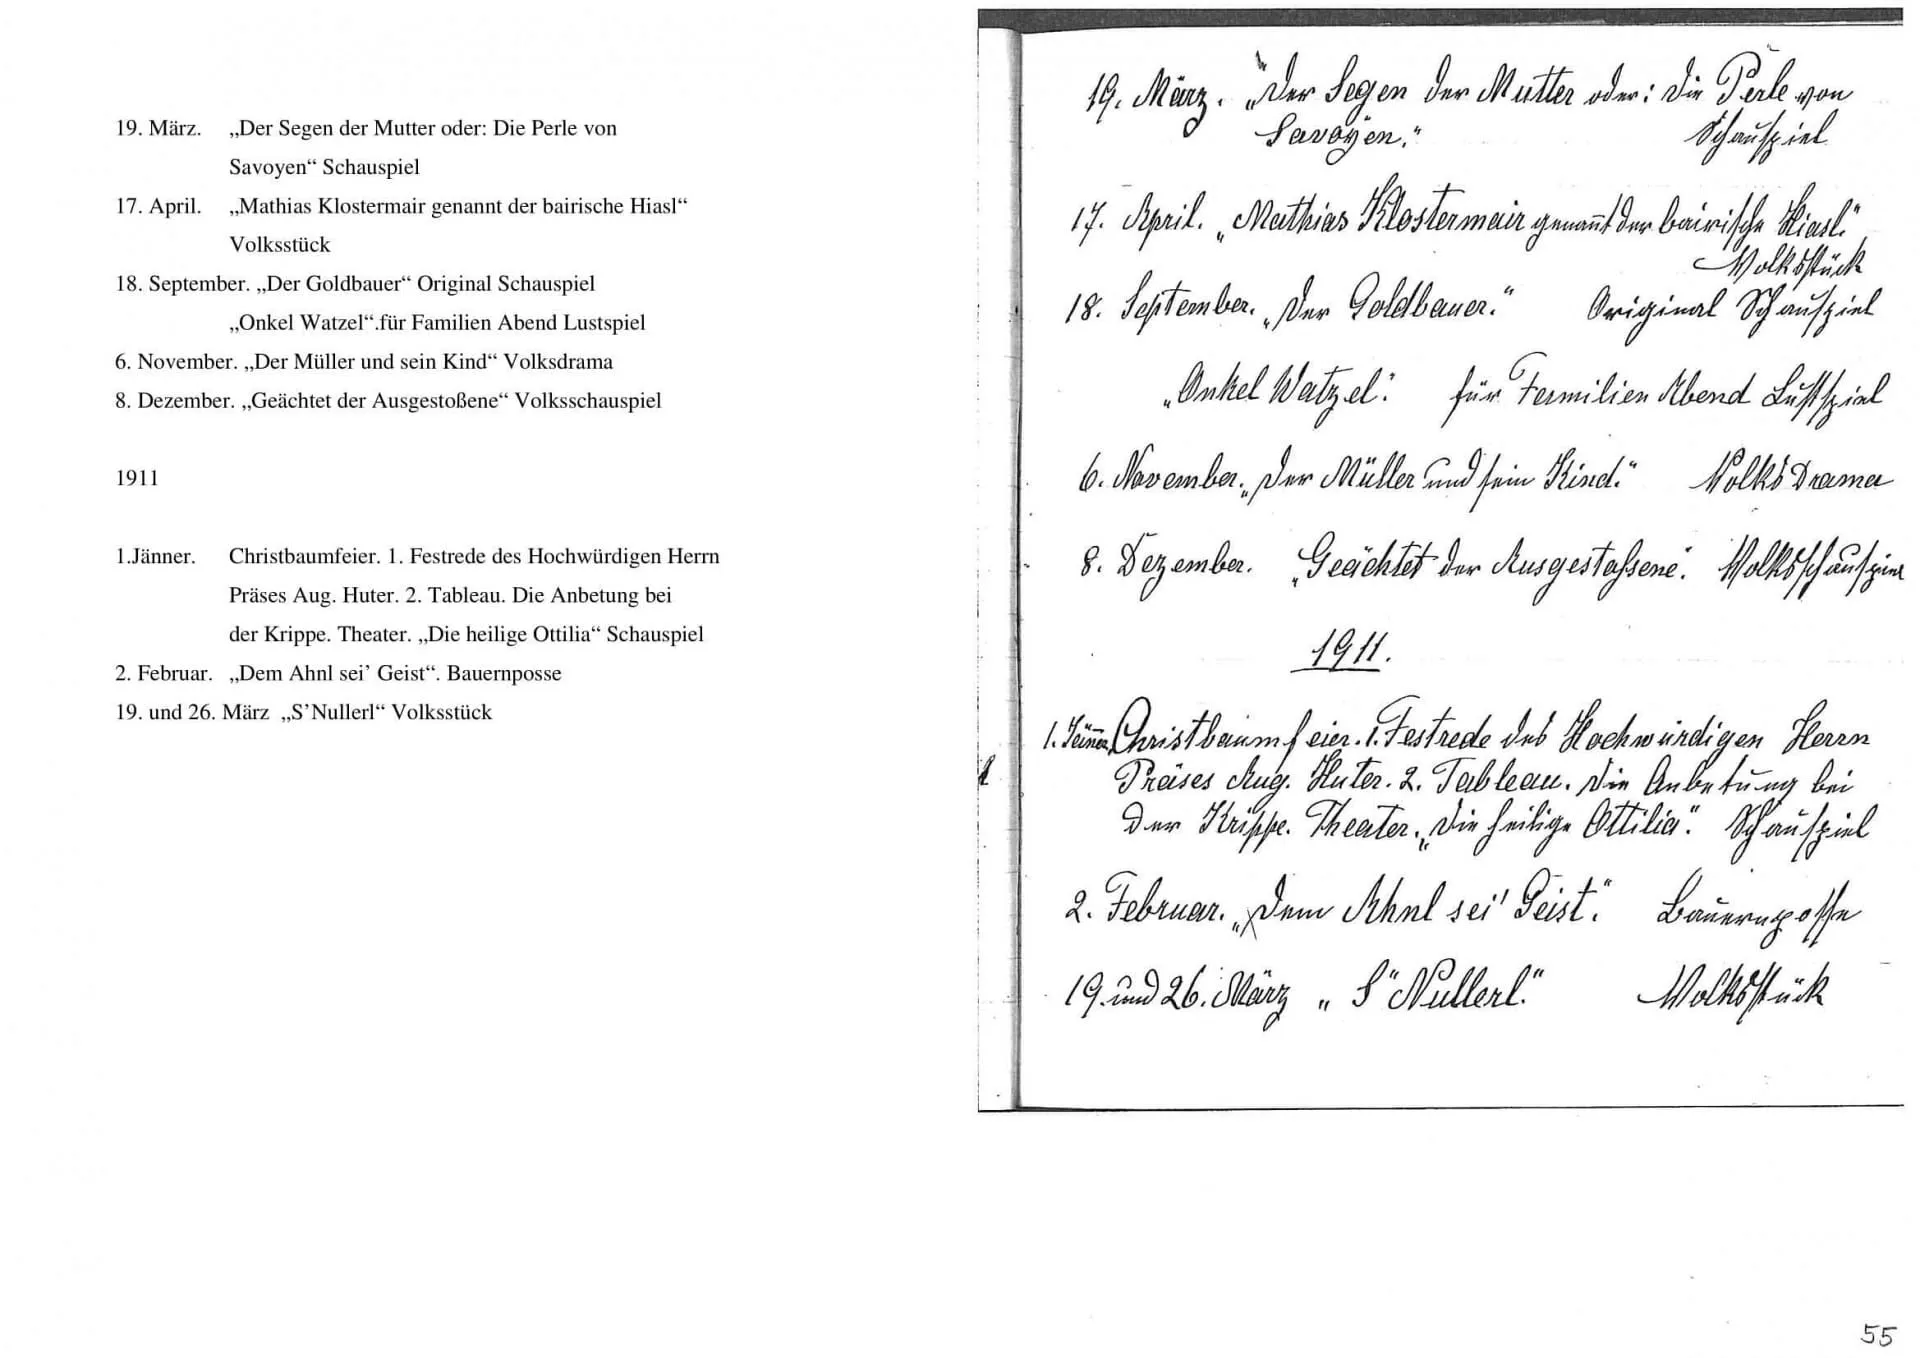 19. März. „Der Segen der Mutter oder: Die Perle von
Savoyen“ Schauspiel
17. April. „Mathias Klostermair genannt der bairische Hiasl“
Volksstück
18. September. „Der Goldbauer“ Original Schauspiel
„Onkel Watzel“.für Familien Abend Lustspiel
6. November. „Der Müller und sein Kind“ Volksdrama
8. Dezember. „Geächtet der Ausgestoßene“ Volksschauspiel
1911
1.Jänner. Christbaumfeier. 1. Festrede des Hochwürdigen Herrn
Präses Aug. Huter. 2. Tableau. Die Anbetung bei
der Krippe. Theater. „Die heilige Ottilia“ Schauspiel
2. Februar. „Dem Ahnl sei’ Geist“. Bauernposse
19. und 26. März „S’Nullerl“ Volksstück
19. März. „Der Segen der Mutter oder: Die Perle von
Savoyen.“ Schauspiel
17. April. „Mathias Klostermair genannt der bairische Hiasl.“
Volksstück
18. September. „Der Goldbauer.“ Original Schauspiel
„Onkel Watzel“. für Familien Abend Lustspiel
6. November. „Der Müller und sein Kind.“ Volks Drama
8. Dezember. „Geächtet der Ausgestoßene“. Volksschauspiel
1911.
1. Jänner. Christbaumfeier. 1. Festrede des Hochwürdigen Herrn
Präses Aug. Huter. 2. Tableau. Die Anbetung bei
der Krippe. Theater. „Die heilige Ottilia“. Schauspiel
2. Februar. „Dem Ahnl sei' Geist“. Bauernposse
19. und 26. März „S“Nullerl.“ Volksstück
55